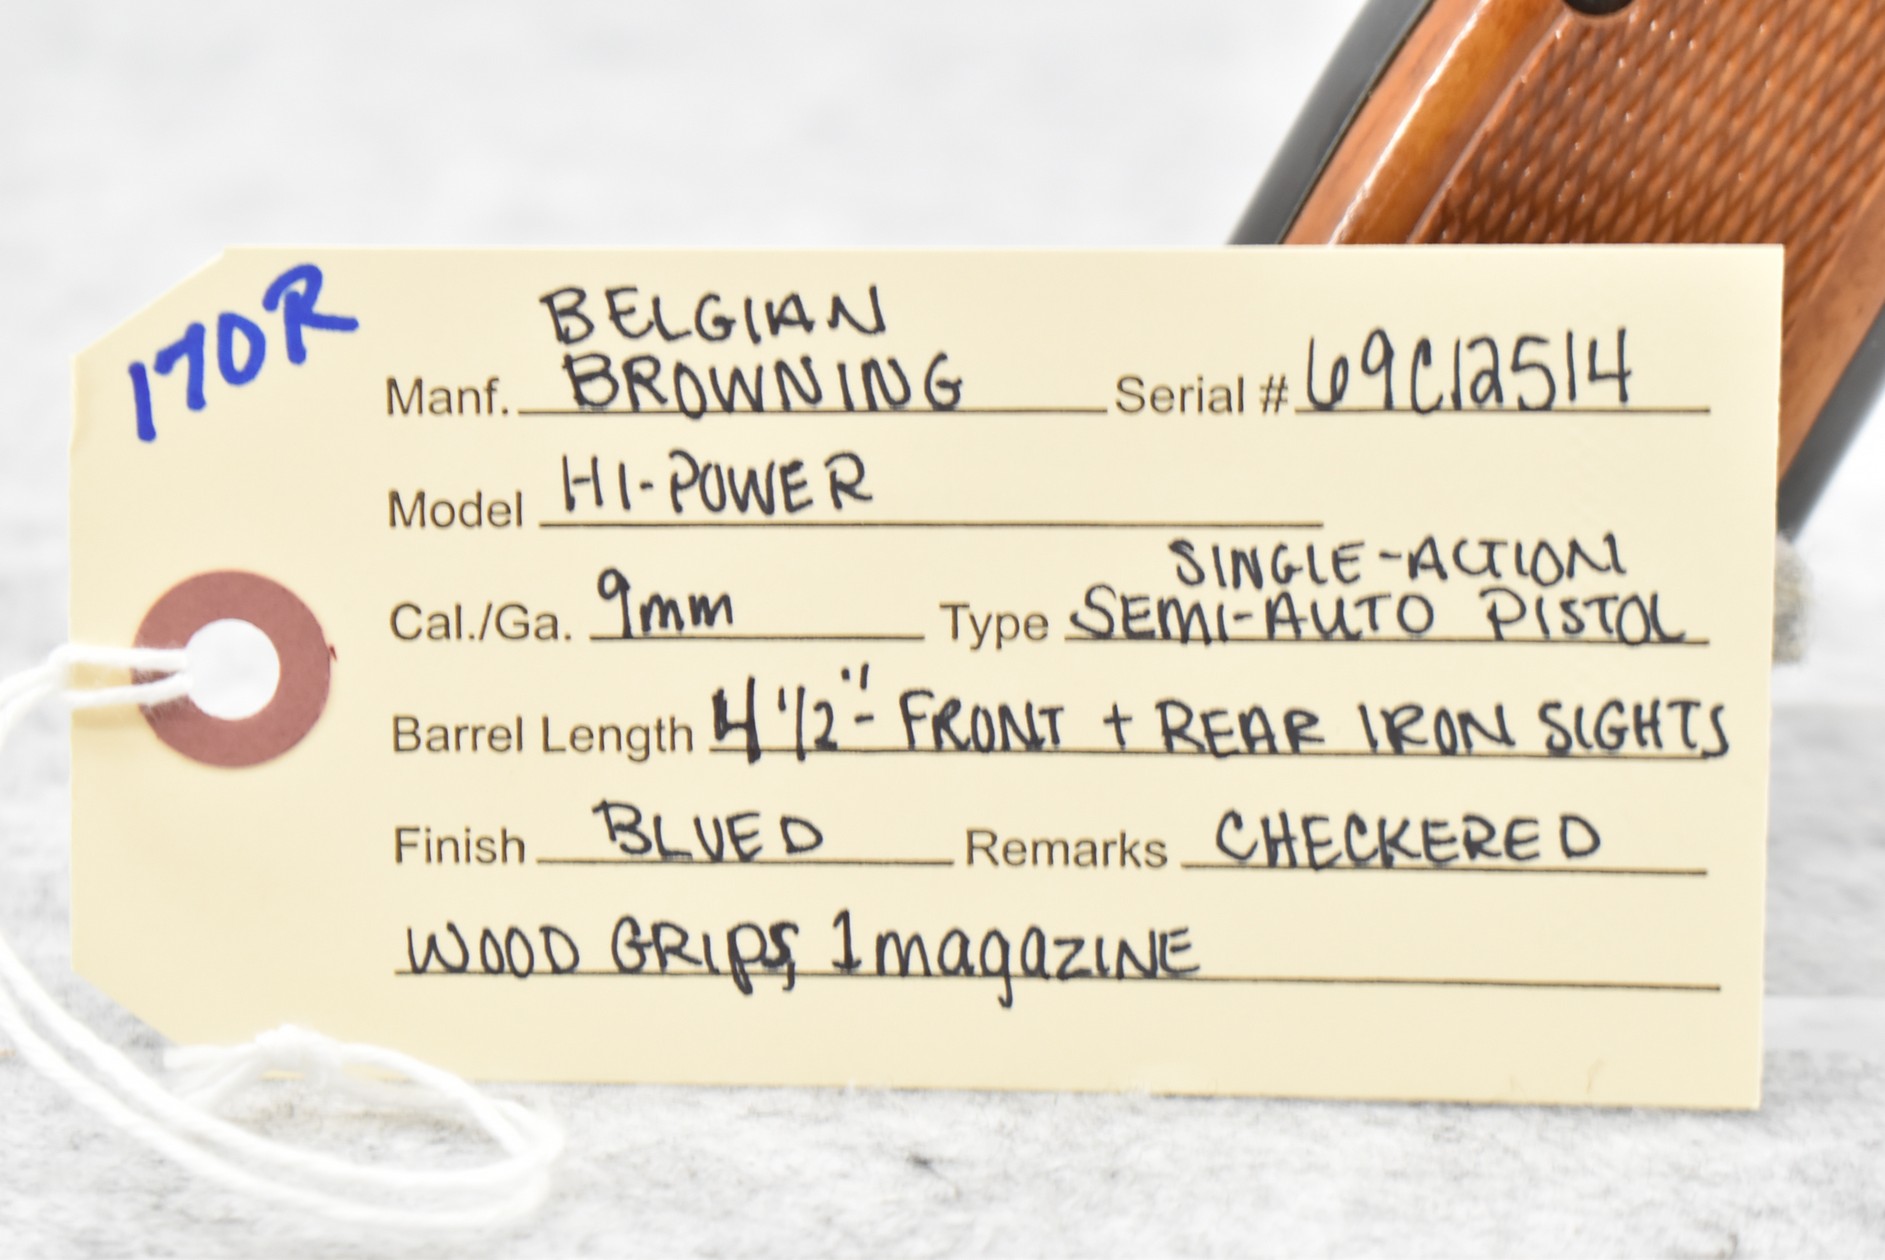 170R
BELGIAN
Manf. BROWNING Serial # 69C12514
Model HI-POWER
SINGLE-ACTION
Cal./Ga. 9mm Type SEMI-AUTO PISTOL
Barrel Length 4 1/2" - FRONT + REAR IRON SIGHTS
Finish BLUED Remarks CHECKERED
WOOD GRIPS, 1 magaZINE